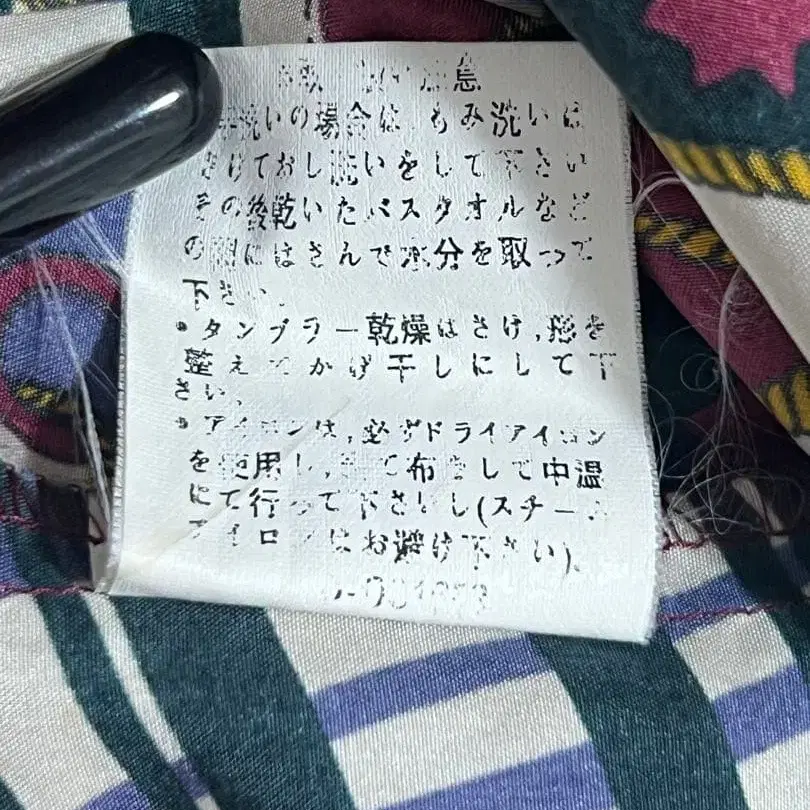 洗いの場合は、もみ洗いは
さけておし洗いをして下さい
その後乾いたバスタオルなど
の間にはさんで水分を取って
下さい。
•タンブラー乾燥はさけ,形を
整えてかげ干しにして下
さい。
•アイロンは,必ずドライアイロン
を使用し,当て布をして中温
にて行って下さい(スチーム
アイロンはお避け下さい)。